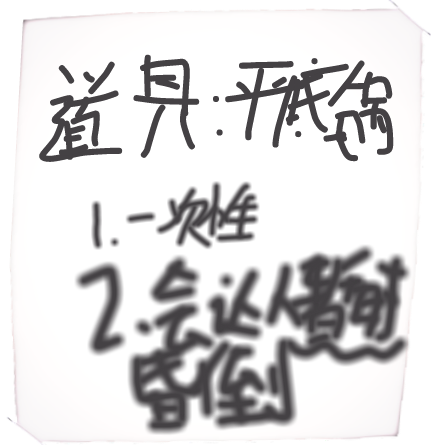 道具:平底锅
1.一次性
2.会让人暂时
昏倒